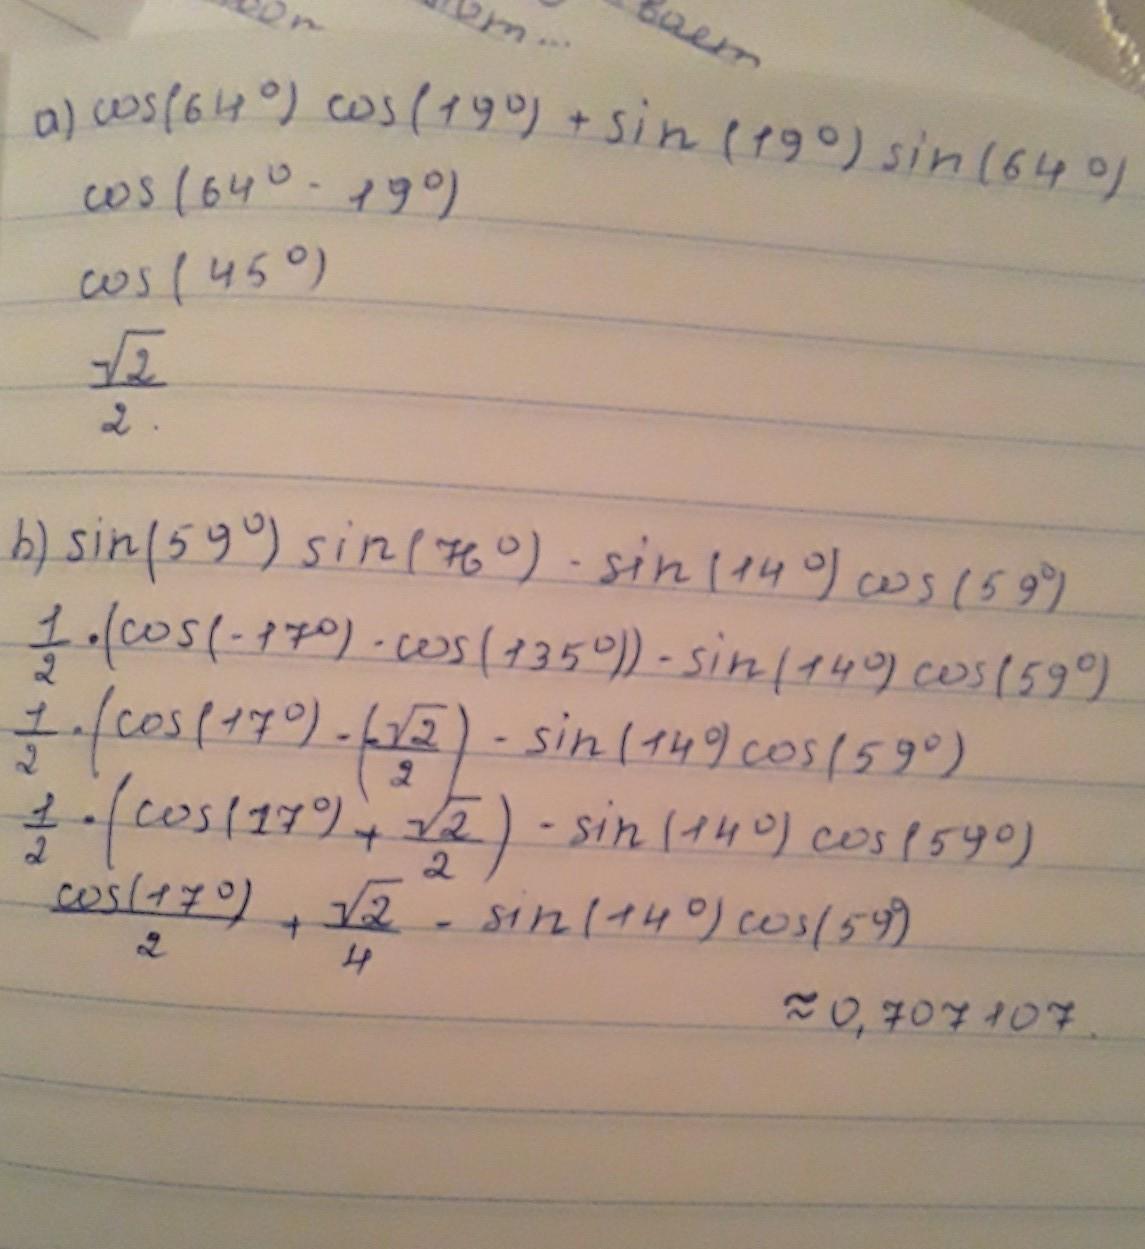 ваем
a) cos(64°) cos(19°) + sin(19°) sin(64°)
cos(64° - 19°)
cos(45°)
√2/2.
b) sin(59°) sin(76°) - sin(14°) cos(59°)
1/2 · (cos(-17°) - cos(135°)) - sin(14°) cos(59°)
1/2 · (cos(17°) - (-√2/2) - sin(14°) cos(59°)
1/2 · (cos(17°) + √2/2) - sin(14°) cos(59°)
cos(17°)/2 + √2/4 - sin(14°) cos(59°)
≈ 0,707107.